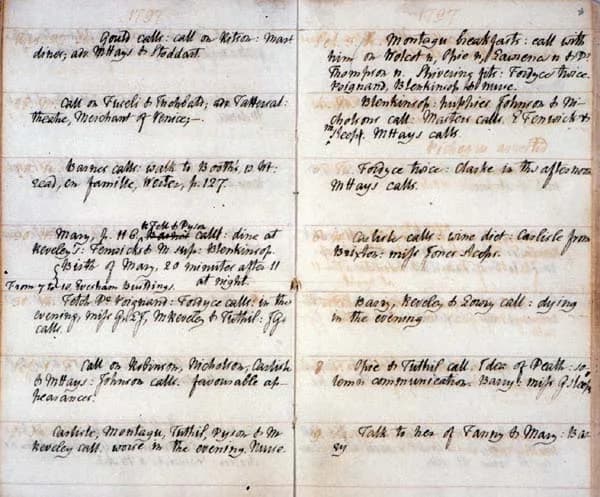 1797
Gould calls: call on Ritson: Mart
dines; adv. MHays & Stoddart.
Call on Fuseli & Inchbald; adv. Tattersal:
theatre, Merchant of Venice;—
Barnes calls: walk to Booth's, w. M:
read, en famille, Werter, p. 127.
Mary, p. 116. Fell & Dyson
calls: dine at
Reveley's: Fenwicks & M. sup: Blenkinsop.
Birth of Mary, 20 minutes after 11
at night.
From 7 to 10, Evesham Buildings.
Fetch Dr Poignand: Fordyce calls: in the
evening, miss G, EJ, M Reveley & Tuthil: 
calls.
Call on Robinson, Nicholson, Carlisle
& MHays: Johnson calls. favourable ap-
pearances.
Carlisle, Montagu, Tuthil, Dyson & M
Reveley call. worse in the evening. Nurse.
1797
Montagu breakfasts: call with
him on Wolcot n, Opie n, Lawrence n & Dr
Thompson n. Shivering fits: Fordyce twice.
Poignand, Blenkinsop & Nurse.
Blenkinsop: puppies Johnson & Ni-
cholson call: Masters calls. E Fenwick &
M sleep. MHays calls.
Pichegru arrested
Fordyce twice: Clarke in the afternoon
MHays calls.
Carlisle calls: wine diet: Carlisle from
Brixton: miss Jones sleeps.
Barry, Reveley & Lowry call: dying
in the evening
8
Opie & Tuthil call. Idea of Death: so-
lemn communication. Barry: miss G. sleeps
Talk to her of Fanny & Mary: Bar-
ry